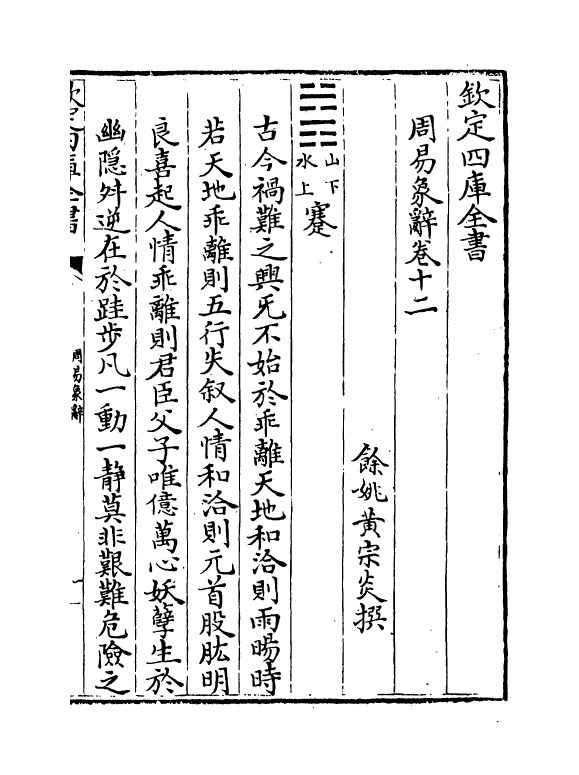 欽定四庫全書
周易象辭卷十二
餘姚黃宗炎撰
䷦山下水上蹇
古今禍難之興旡不始於乖離天地和洽則雨暘時
若天地乖離則五行失叙人情和洽則元首股肱明
良喜起人情乖離則君臣父子唯億萬心妖孽生於
幽隱舛逆在於跬步凡一動一静莫非艱難危險之
欽定四庫全書
周易象辭
一